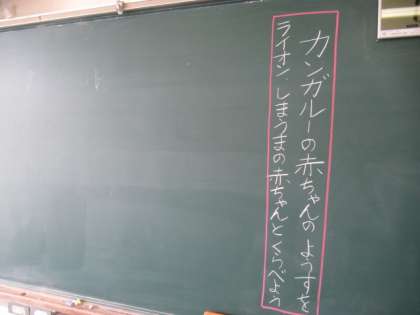 カンガルーの赤ちゃんのようすを
ライオン・しまうまの赤ちゃんとくらべよう